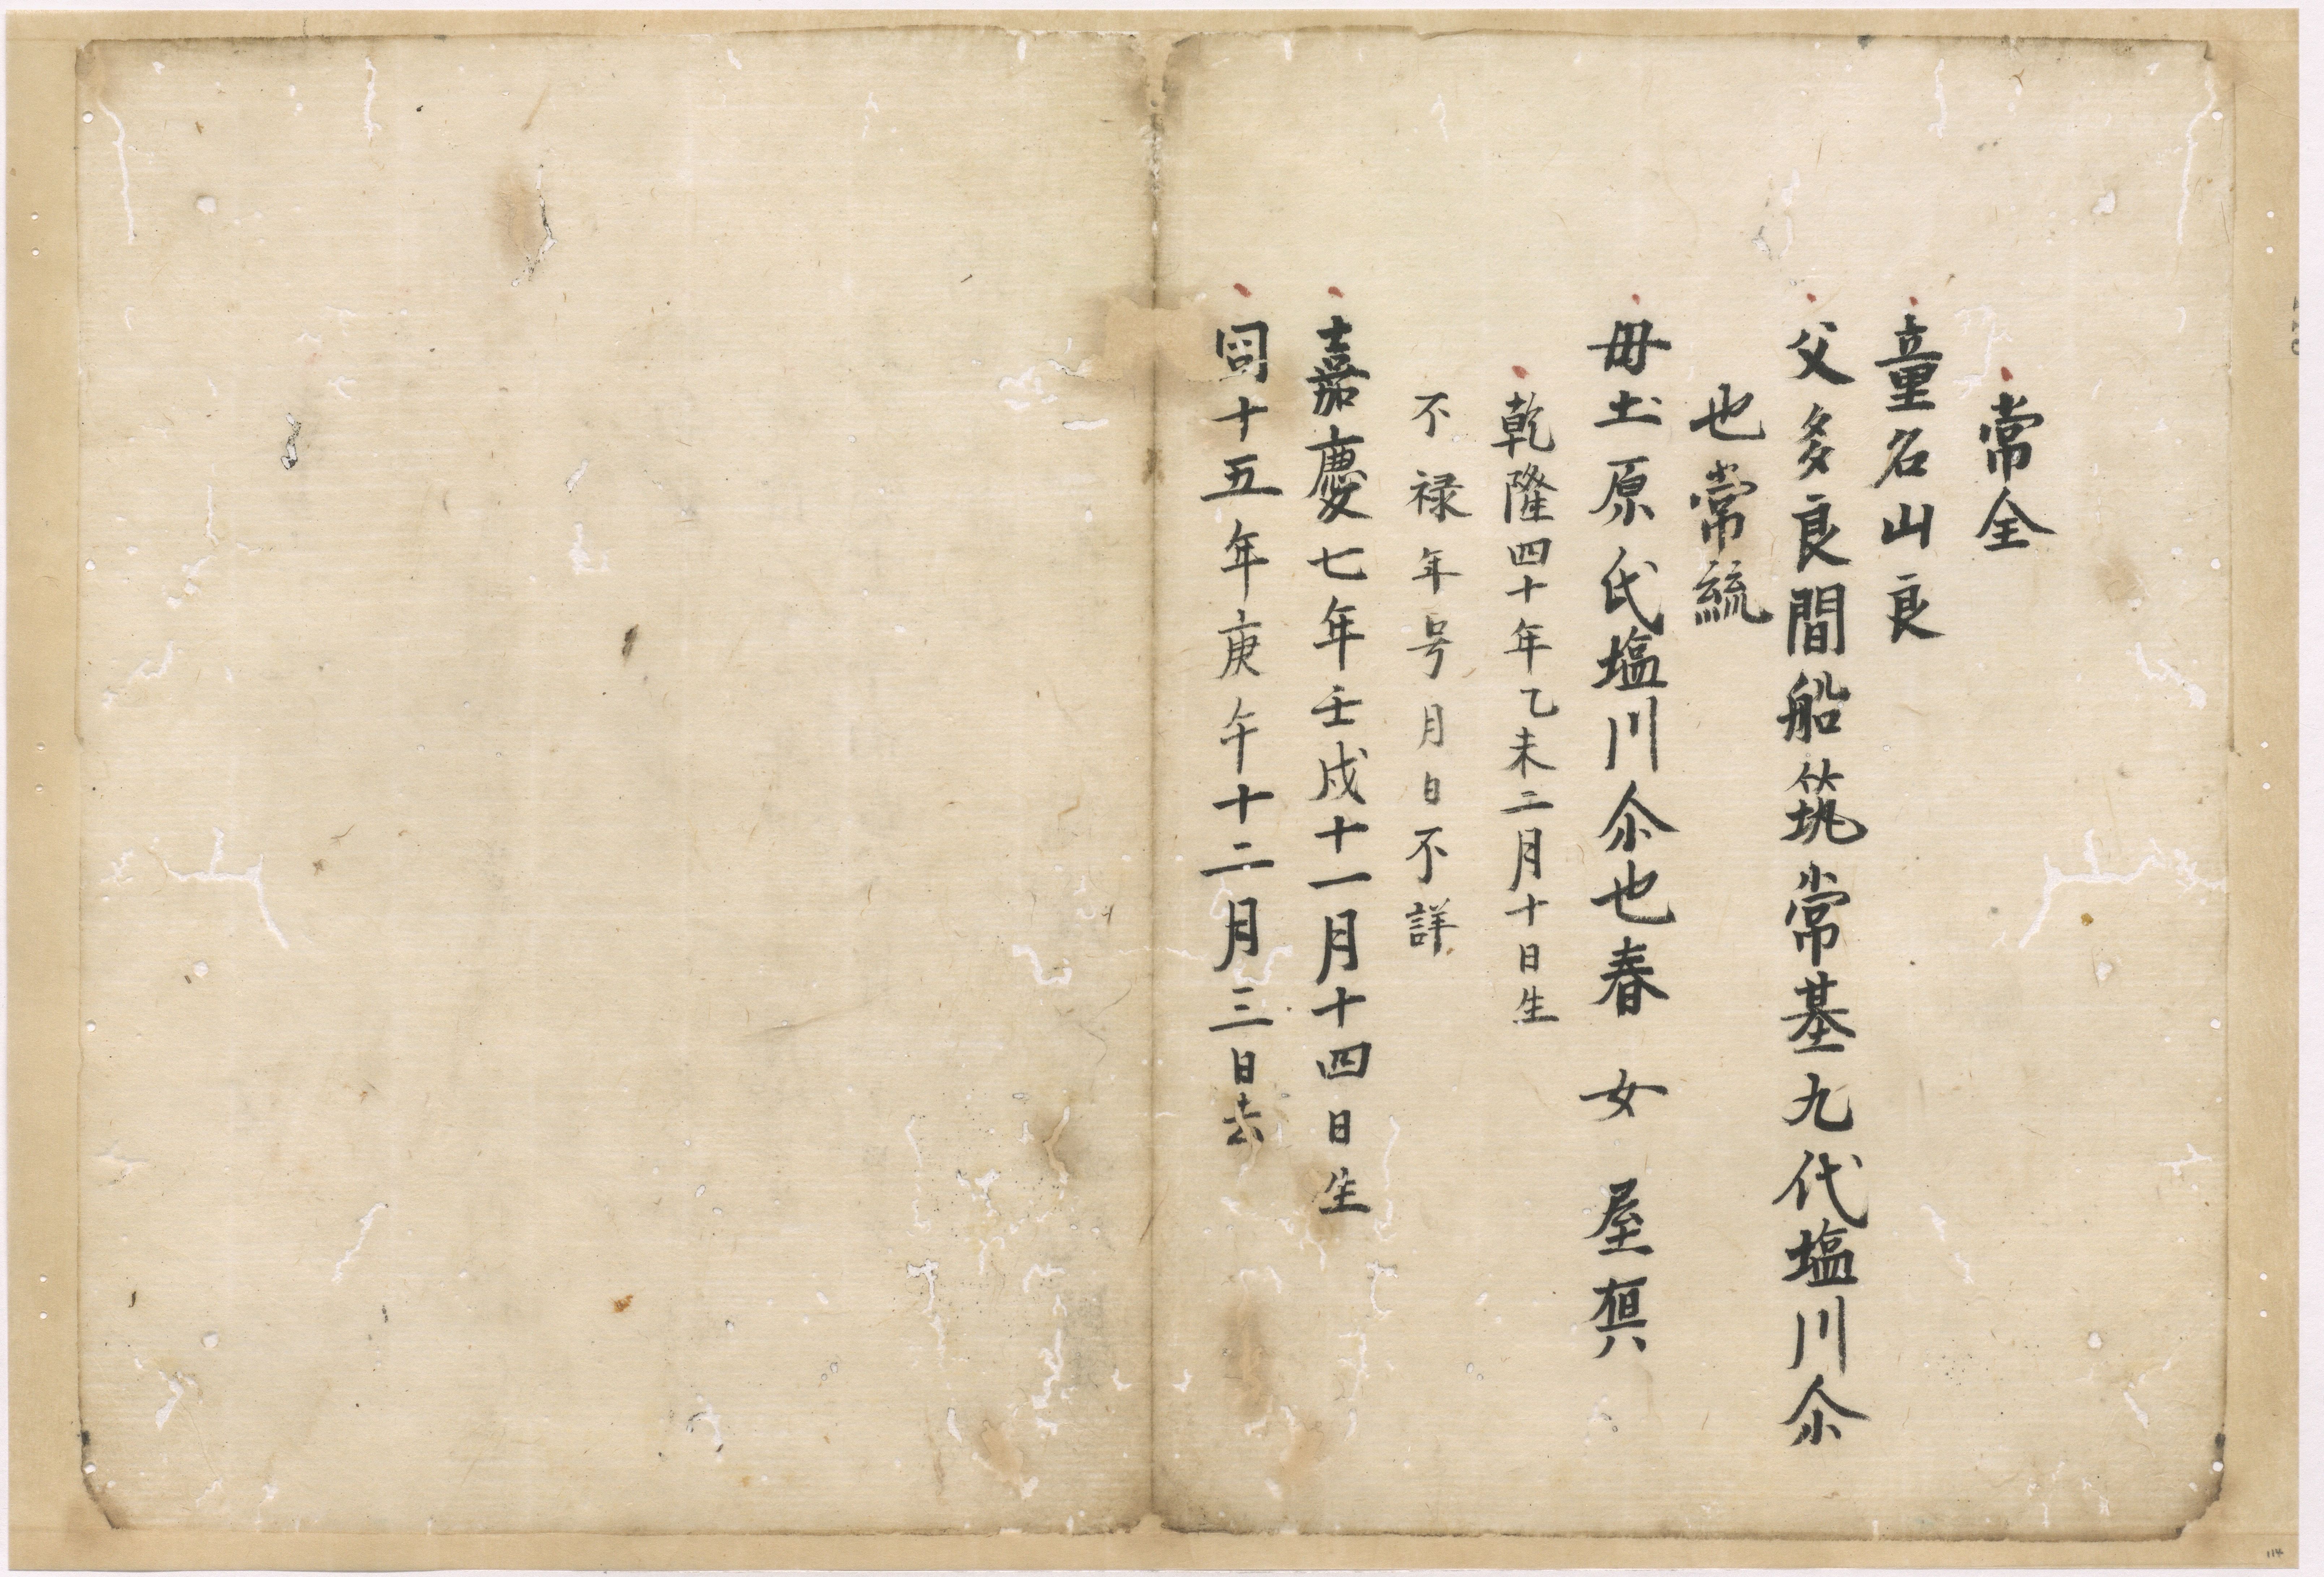 常全
童名山良
父多良間船筑常基九代塩川尒
也常統
母圡原氏塩川尒也春女屋
乾隆四十年乙未二月十日生
不禄年号月日不詳
嘉慶七年壬戌十一月十四日生
同十五年庚午十二月三日去
114